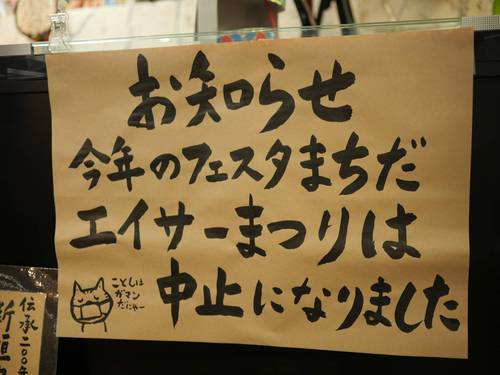 お知らせ
今年のフェスタまちだ
エイサーまつりは
中止になりました
ことしは
ガマン
だにゃー
伝承二〇〇年
新垣